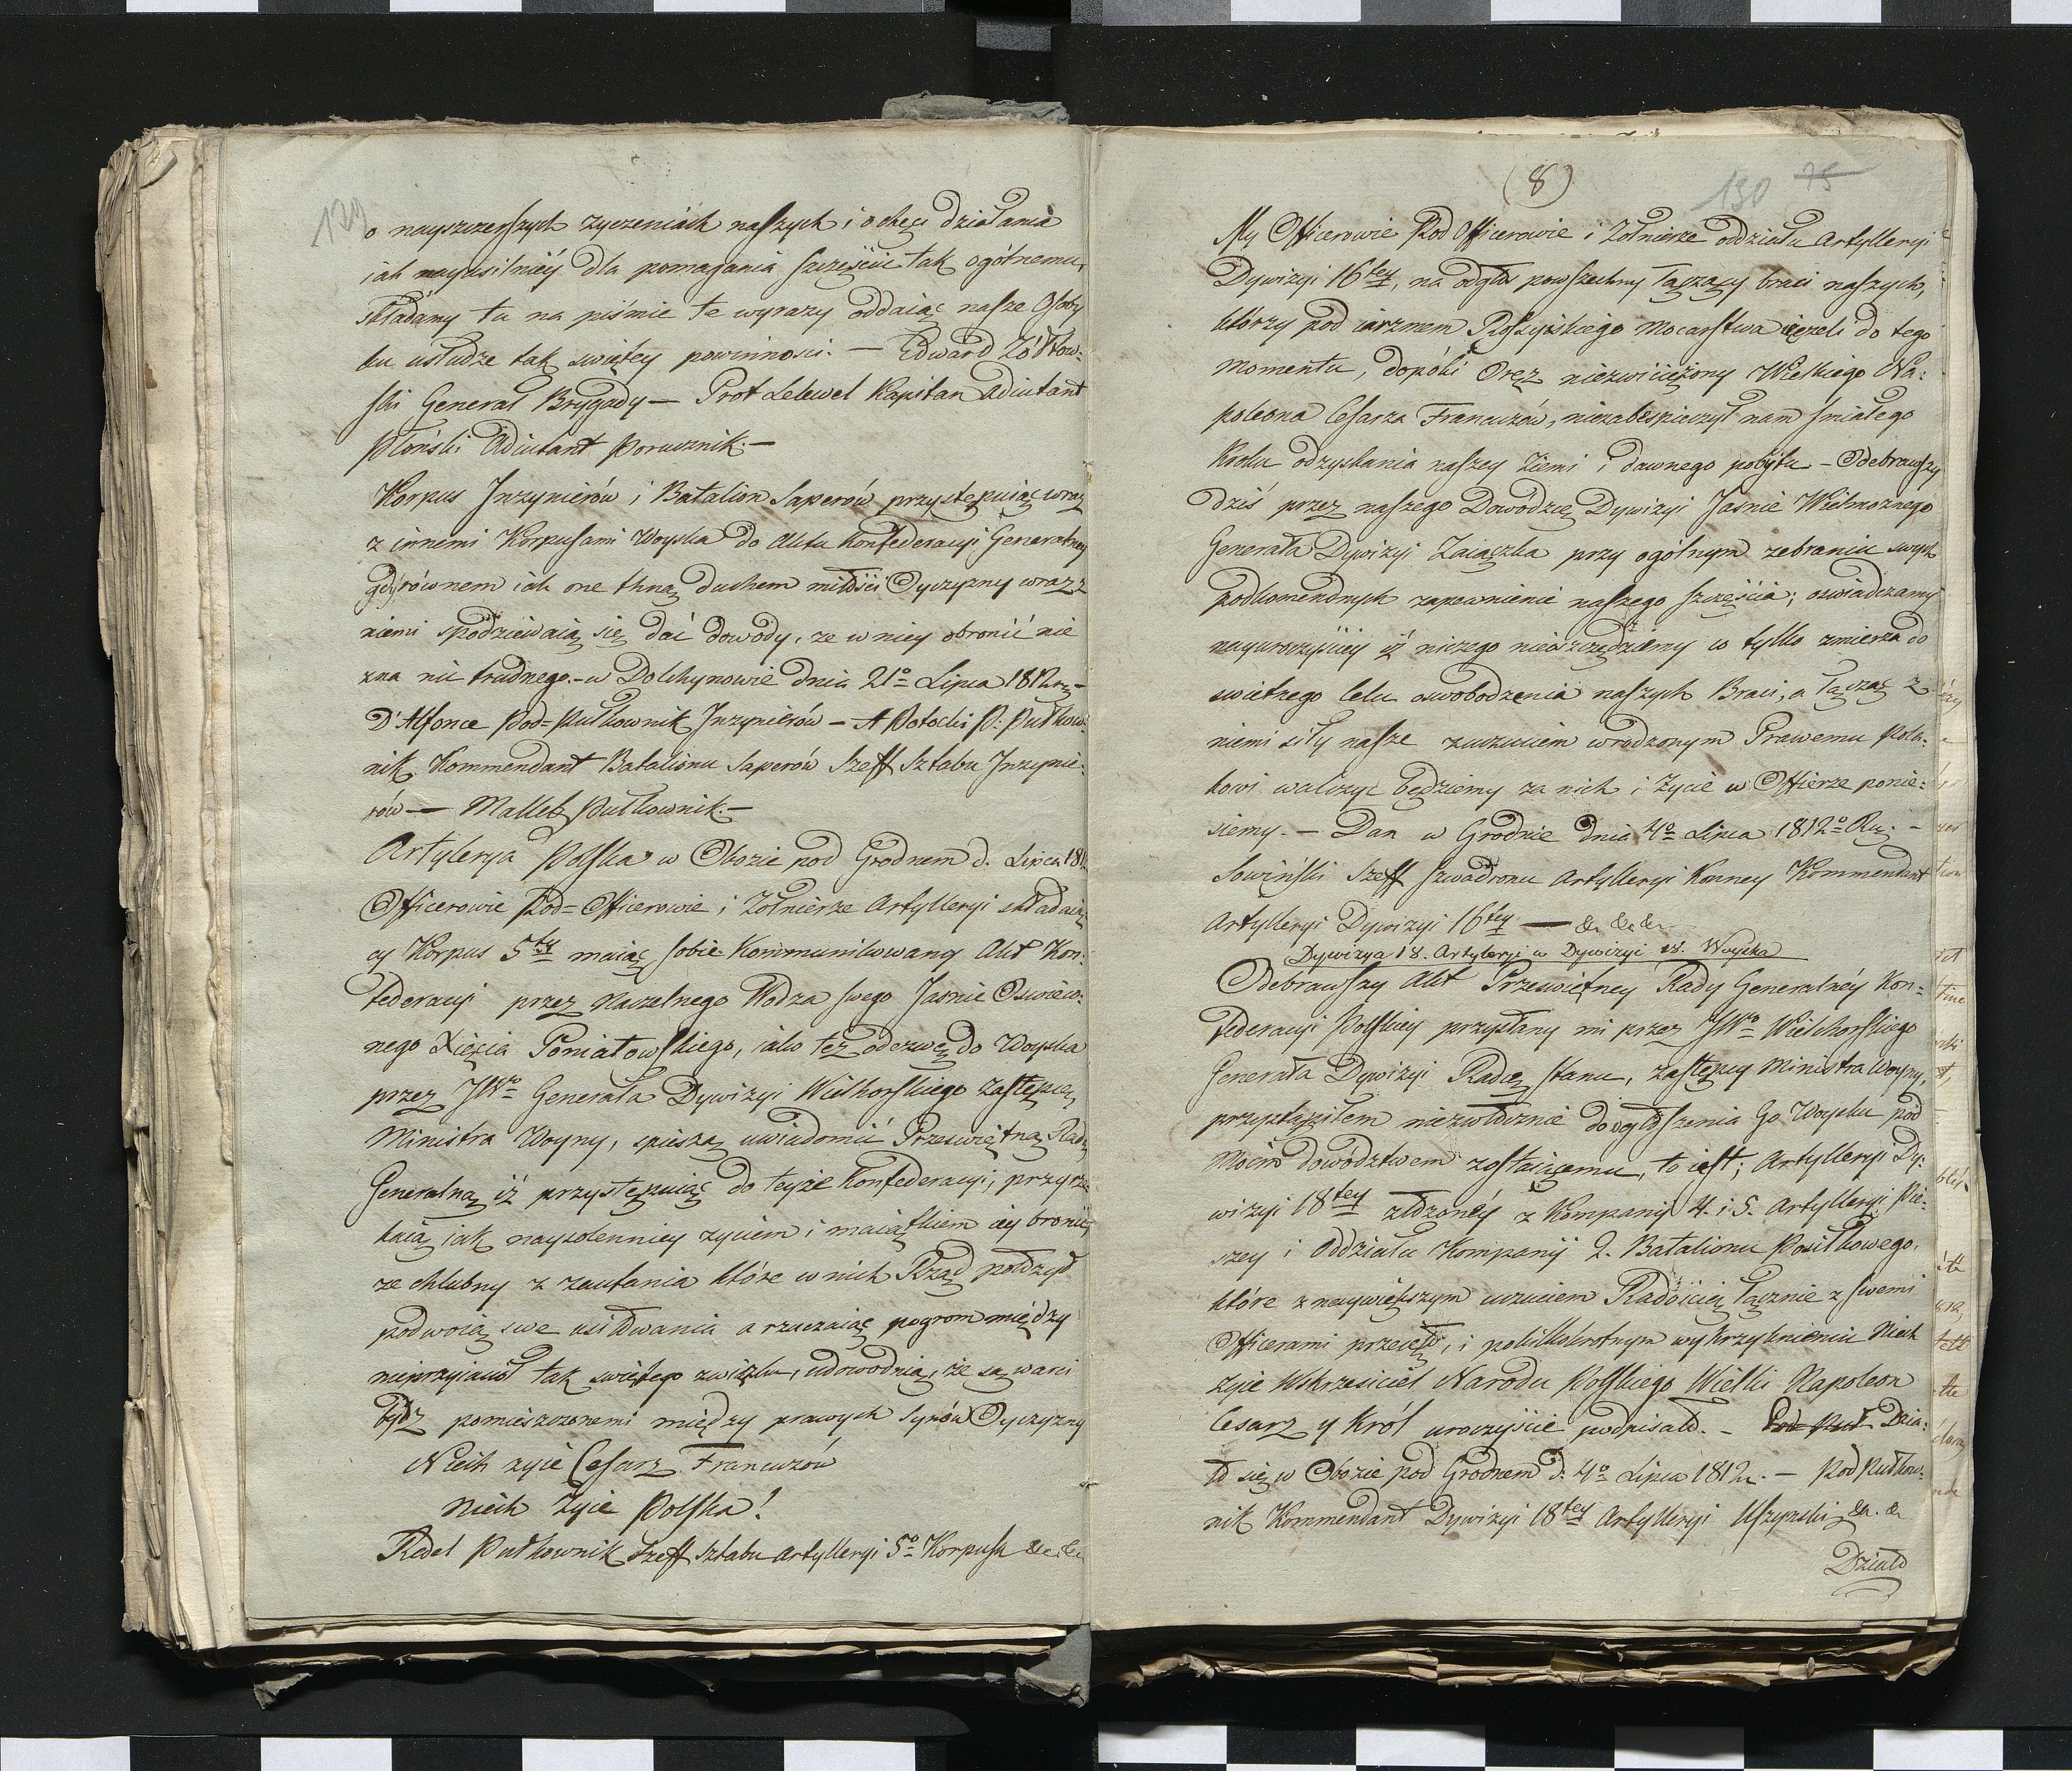 129
o nayszczerszych życzeniach naszych i o chęci działania
iak nayusilniéy dla pomagania szczęściu tak ogólnemu,
składamy tu na piśmie te wyrazy oddaiąc nasze Osoby
ku usłudze tak swiętey powinnosci. — Edward Żółtow:
ski Generał Brygady — Prot Lelewel Kapitan Adiutant
Płoński Adiutant Porucznik. —
Korpus Inzynierów i Batalion Saperów przystępuiąc wraz
z innemi Korpusami Woyska do Aktu Konfederacyi Generalney
gdy równem iak one tkną duchem miłości Oyczyzny wraz z
niemi spodziewaią się dać dowody, ze w niey obronić nie
zna nic trudnego. - w Dołhynowie dnia 21o Lipca 1812 r. –
D'Alfonce Pod=Pułkownik Inzynierów — A Potocki P: Pułkow:
nik Kommendant Batalionu Saperów Szeff Sztabu Inzynie:
rów — Mallet Pułkownik. —
Artylerya Polska w Obozie pod Grodnem d. Lipca 1812
Officerowie Pod=Officerowie i Żołnierze Artylleryi składaią
cy Korpus 5ty maiąc sobie Kommunikowany Akt Kon:
federacyi przez Naczelnego Wodza swego Jasnie Oswieco:
nego Xięcia Poniatowskiego, iako też odezwę do Woyska
przez JWo Generała Dywizyi Wielhorskiego Zastępcę
Ministra Woyny, spieszą uwiadomić Przeswiętną Radę
Generalną iż przystępuiąc do teyże Konfederacyi, przyrze
kaią iak naysolenniey zyciem i maiątkiem iey bronić,
ze chlubny z zaufania które w nich Rząd położył
podwoią swe usiłowania a rzucaiąc pogrom między
nieprzyjaciół tak swiętego związku, udowodnią, że są warci
bydz pomieszczonemi między prawych synów Oyczyzny
Niech zyie Cesarz Francuzów
Niech żyie Polska!
Redel Pułkownik Szeff Sztabu Artylleryi 5o Korpusu &c. &c
(8)
130 75
My Officerowie Pod Officerowie i Żołnierze oddziału Artylleryi
Dywizyi 16tey, na odgłos powszechny łączący braci naszych,
którzy pod iarzmem Rossyiskiego mocarstwa ięzeli do tego
momentu, dopóki Oręz niezwiciężony Wielkiego Na:
poleona Cesarza Francuzów, niezabespieczył nam smiałego
kroku odzyskania naszey Ziemi i dawnego pobytu – Odebrawszy
dziś przez naszego Dowódzcę Dywizyi Jasnie Wielmoznego
Generała Dywizyi Zaiączka przy ogólnym zebraniu swych
podkomendnych zapewnienie naszego szczęścia; oswiadczamy
nayuroczyściey iż niczego nieoszczędziemy co tylko zmierza do
swietnego celu oswobodzenia naszych Braci, a łącząc z
niemi siły nasze z uczuciem wrodzonym Prawemu Pola:
kowi walczyć będziemy za nich i życie w Offierze ponie:
siemy. — Dan w Grodnie dnia 4o Lipca 1812o Ru: –
Sowiński Szeff szwadronu Artylleryi Konney Kommendant
Artylleryi Dywizyi 16tey — &. &c &.
Dywizya 18. Artyleryi w Dywizyi 18. Woyska
Odebrawszy Akt Przeswiętney Rady Generalnéy Kon=
federacyi Polskiey przysłany mi przez JWo Wielchorskiego
Generała Dywizyi Radcę stanu, zastępcy Ministra Woyny,
przystąpiłem niezwłocznie do ogłoszenia Go Woysku pod
moim dowództwem zostaiącemu, to iest; Artylleryi Dy:
wizyi 18tey złożonéy z Kompanij 4. i 5. Artylleryi Pie:
szey i Oddziału Kompanij 2. Batalionu Posiłkowego.
które z naywiększym uczuciem Radości łącznie z swemi
Officerami przeięte, i pokilkokrotnym wykrzyknieniu Niech
żyie Wskrzesiciel Narodu Polskiego Wielki Napoleon
Cesarz y Król uroczyście podpisało. – Pod=Puł Dzia:
ło się w Obozie pod Grodnem d. 4o Lipca 1812 r. — Pod Pułkow:
nik Kommendant Dywizyi 18tey Artylleryi Uszynski &. &
Działo